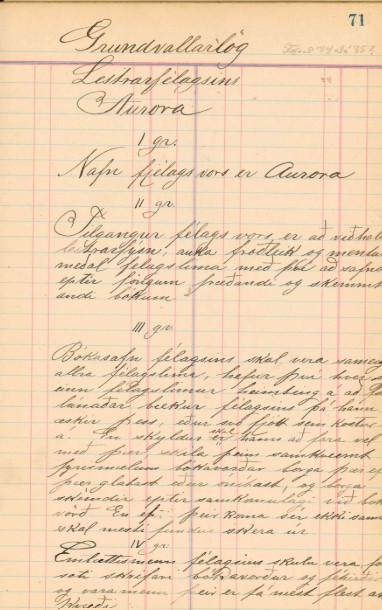 71
Grundvallarlög
Lestrarfélagsins
Aurora
I gr.
Nafn fjelags vors er Aurora
II gr.
Tilgangur félags vors, er að viðhal
lestrarfýsn, auka fróðleik og mentan
meðal félagslima með því að safna
eptir föngum fræðandi og skemmt
andi bókum
III gr.
Bókasafn félagsins skal vera sameig
allra félagslima, hefur því hver
einn félagslimur heimting á að fá
lánaðar bækur félagsins þá hann
æskir þess, eður svo fljótt sem kostur
á. En skyldur skal hann að fara vel
með þær skila þeim samkvæmt
fyrirmælum bókavarðar borga þær ef
þær glatast eður ónýtast, og borga
skémdir eptir samkomulagi við bók
vörð. En ef þeir koma sér ekki saman
skal næsti fundur skera úr
IV gr.
Embættismenn félagsins skulu vera, fo
seti skrifari bókavörður og féhirðir
og varamenn þeir er fá mest flest at
kvæði